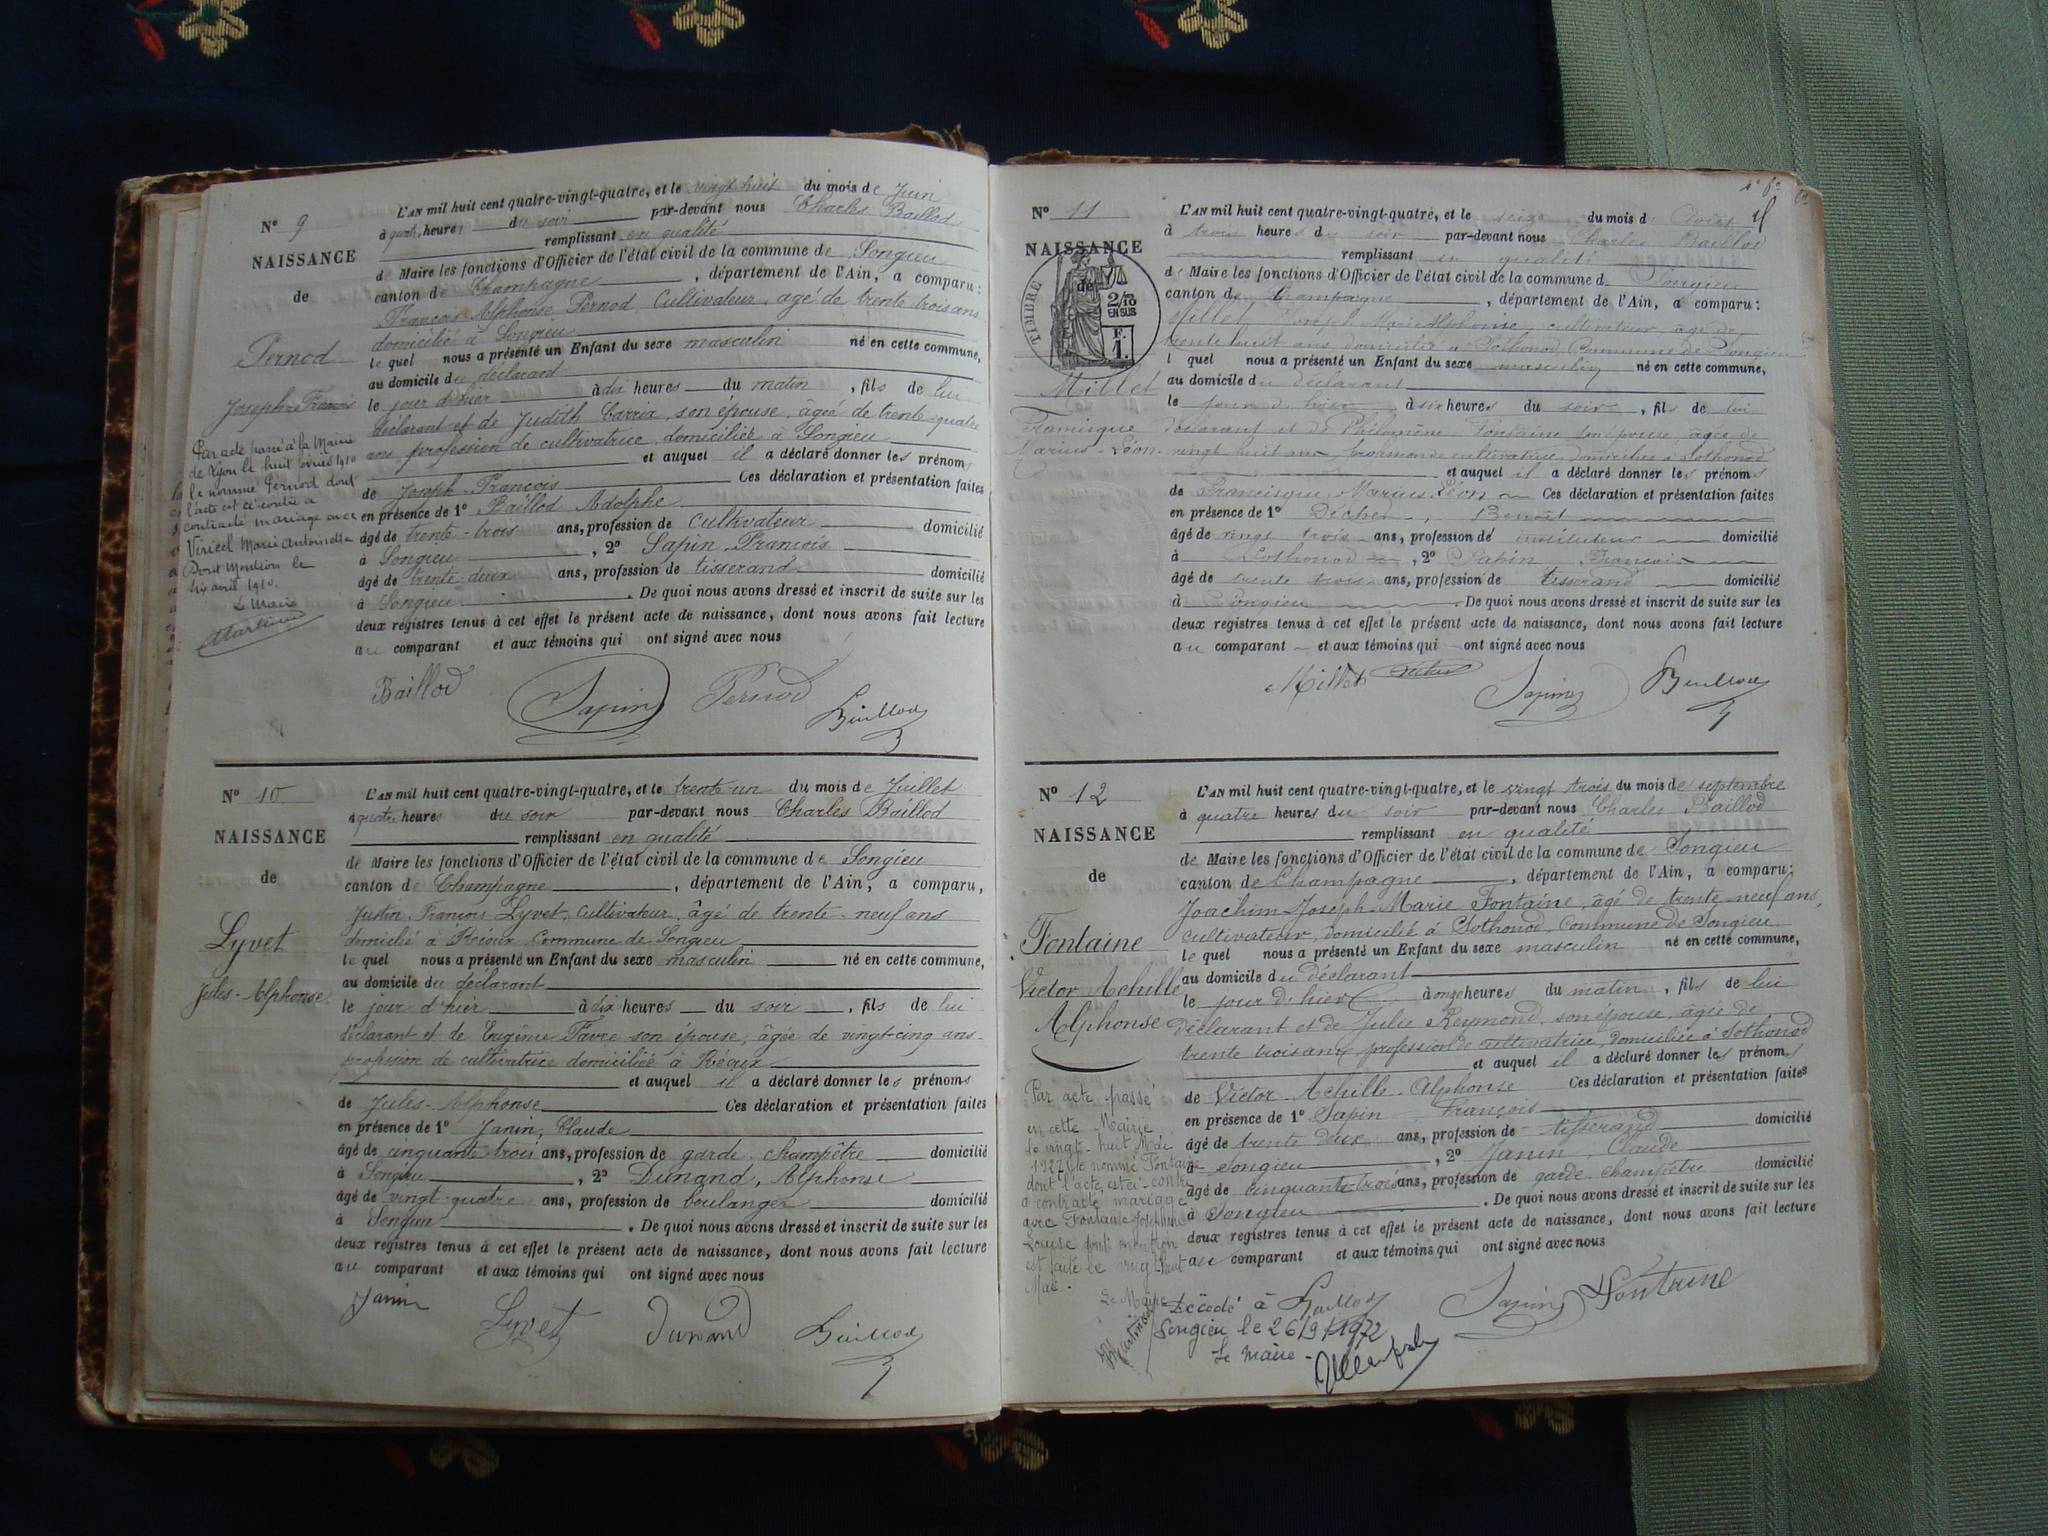 N° 9
NAISSANCE
de
Pernod
Joseph-François
Par acte passé à la Mairie
de Lyon le huit février 1910
le nommé Pernod dont
l'acte est ci-contre a
contracté mariage avec
Viricel Marie Antoinette
Dont Mention le
six avril 1910.
Le Maire
L'AN mil huit cent quatre-vingt-quatre, et le vingt huit du mois de Juin
à quatre heures du soir par-devant nous Charles Baillod
remplissant en qualité
de Maire les fonctions d'Officier de l'état civil de la commune de Songieu
canton de Champagne, département de l'Ain, a comparu:
François-Alphonse Pernod, Cultivateur, âgé de trente-trois ans
domicilié à Songieu
le quel nous a présenté un Enfant du sexe masculin né en cette commune,
au domicile du déclarant
le jour d'hier à dix heures du matin, fils de lui
déclarant et de Judith Carrix, son épouse, âgée de trente-quatre
ans profession de cultivatrice, domiciliée à Songieu
et auquel il a déclaré donner les prénoms
de Joseph-François Ces déclaration et présentation faites
en présence de 1° Baillod Adolphe
âgé de trente-trois ans, profession de cultivateur domicilié
à Songieu, 2° Sapin François
âgé de trente-deux ans, profession de tisserand domicilié
à Songieu. De quoi nous avons dressé et inscrit de suite sur les
deux registres tenus à cet effet le présent acte de naissance, dont nous avons fait lecture
au comparant et aux témoins qui ont signé avec nous
Baillod Sapin Pernod Baillod
N° 10
NAISSANCE
de
Lyvet
Jules-Alphonse
L'AN mil huit cent quatre-vingt-quatre, et le trente un du mois de Juillet
à quatre heures du soir par-devant nous Charles Baillod
remplissant en qualité
de Maire les fonctions d'Officier de l'état civil de la commune de Songieu
canton de Champagne, département de l'Ain, a comparu,
Justin François Lyvet, Cultivateur, âgé de trente-neuf ans
domicilié à Réoux Commune de Songieu
le quel nous a présenté un Enfant du sexe masculin né en cette commune,
au domicile du déclarant
le jour d'hier à dix heures du soir, fils de lui
déclarant et de Eugénie Favre son épouse, âgée de vingt-cinq ans
profession de cultivatrice domiciliée à Réoux
et auquel il a déclaré donner les prénoms
de Jules-Alphonse Ces déclaration et présentation faites
en présence de 1° Janin, Claude
âgé de cinquante trois ans, profession de garde champêtre domicilié
à Songieu, 2° Dunand, Alphonse
âgé de vingt-quatre ans, profession de boulanger domicilié
à Songieu. De quoi nous avons dressé et inscrit de suite sur les
deux registres tenus à cet effet le présent acte de naissance, dont nous avons fait lecture
au comparant et aux témoins qui ont signé avec nous
Janin Lyvet Dunand Baillod
N° 11
NAISSANCE
de
TIMBRE
2/10
EN SUS
F.
1.
Millet
Francisque
Marius-Léon
L'AN mil huit cent quatre-vingt-quatre, et le seize du mois d Août
à trois heures du soir par-devant nous Charles Baillod
remplissant en qualité
de Maire les fonctions d'Officier de l'état civil de la commune de Songieu
canton de Champagne, département de l'Ain, a comparu:
Millet Joseph Marie Alphonse, cultivateur, âgé de
trente huit ans domicilié à Sothonod, Commune de Songieu
l quel nous a présenté un Enfant du sexe masculin né en cette commune,
au domicile du déclarant
le jour d'hier à six heures du soir, fils de lui
déclarant et de Philomène Fontaine son épouse, âgée de
vingt huit ans profession de cultivatrice, domiciliée à Sothonod
et auquel il a déclaré donner les prénoms
de Francisque Marius Léon Ces déclaration et présentation faites
en présence de 1° Benoit
âgé de vingt trois ans, profession de instituteur domicilié
à Sothonod, 2° Sapin François
âgé de trente trois ans, profession de tisserand domicilié
à Songieu. De quoi nous avons dressé et inscrit de suite sur les
deux registres tenus à cet effet le présent acte de naissance, dont nous avons fait lecture
au comparant et aux témoins qui ont signé avec nous
Millet Sapin Baillod
N° 12
NAISSANCE
de
Fontaine
Victor Achille
Alphonse
Par acte passé
en cette Mairie
le vingt-huit Mai
1927 le nommé Fontaine
dont l'acte est ci-contre
a contracté mariage
avec Fontaine Joséphine
Louise dont mention
est faite le vingt huit
Mai.
Le Maire
L'AN mil huit cent quatre-vingt-quatre, et le vingt trois du mois de septembre
à quatre heures du soir par-devant nous Charles Baillod
remplissant en qualité
de Maire les fonctions d'Officier de l'état civil de la commune de Songieu
canton de Champagne, département de l'Ain, a comparu:
Joachim-Joseph-Marie Fontaine, âgé de trente neuf ans,
cultivateur, domicilié à Sothonod, Commune de Songieu
le quel nous a présenté un Enfant du sexe masculin né en cette commune,
au domicile du déclarant
le jour d'hier à onze heures du matin, fils de lui
déclarant et de Julie Reymond, son épouse, âgée de
trente trois ans profession de cultivatrice, domiciliée à Sothonod
et auquel il a déclaré donner les prénoms
de Victor-Achille-Alphonse Ces déclaration et présentation faites
en présence de 1° Sapin, François
âgé de trente deux ans, profession de tisserand domicilié
à Songieu, 2° Janin, Claude
âgé de cinquante-trois ans, profession de garde champêtre domicilié
à Songieu. De quoi nous avons dressé et inscrit de suite sur les
deux registres tenus à cet effet le présent acte de naissance, dont nous avons fait lecture
au comparant et aux témoins qui ont signé avec nous
Baillod Sapin Fontaine
Décédé à
Songieu le 26/9/1972
Le Maire